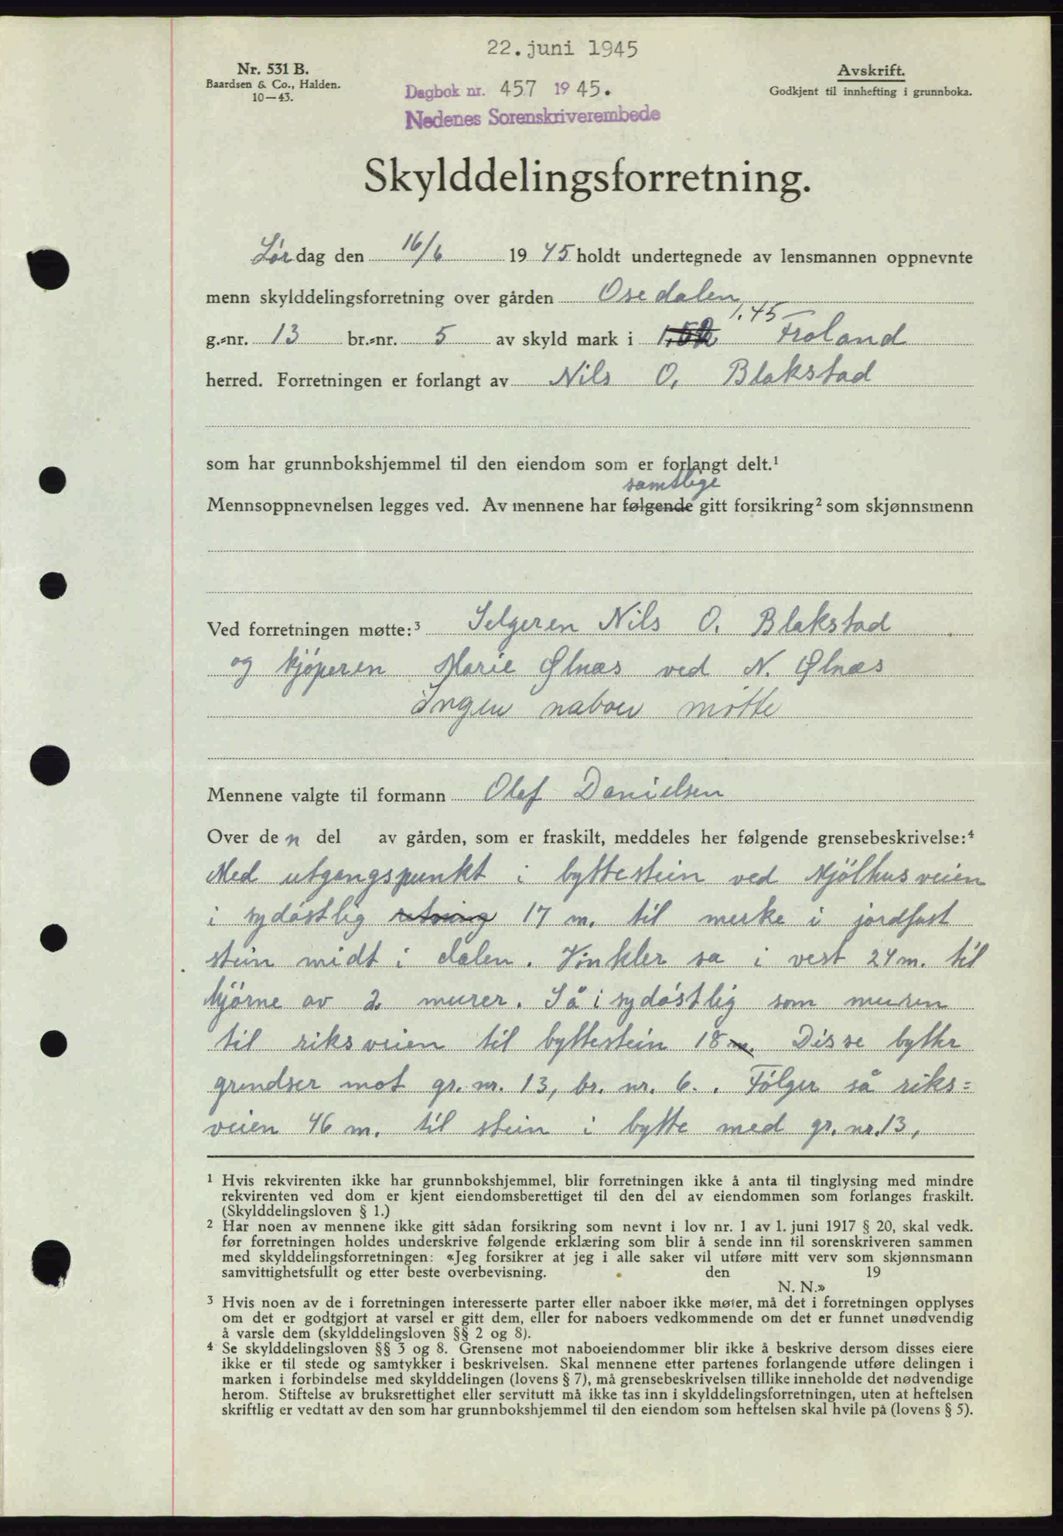 22.juni 1945
Nr. 531 B.
Baardsen & Co., Halden.
10—43.
Avskrift.
Godkjent til innhefting i grunnboka.
Dagbok nr. 457 1945.
Nedenes Sorenskriverembede
Skylddelingsforretning.
Lørdag den 16/6 1945 holdt undertegnede av lensmannen oppnevnte
menn skylddelingsforretning over gården Osedalen
g.-nr. 13 br.-nr. 5 av skyld mark i 1,52 1.45 Froland
herred. Forretningen er forlangt av Nils O. Blakstad
som har grunnbokshjemmel til den eiendom som er forlangt delt.¹
samtlige
Mennsoppnevnelsen legges ved. Av mennene har følgende gitt forsikring² som skjønnsmenn
Ved forretningen møtte:³ Selgeren Nils O. Blakstad
og kjøperen Marie Ølnæs ved N. Ølnæs
Ingen naboer møtte
Mennene valgte til formann Olaf Danielsen
Over den del av gården, som er fraskilt, meddeles her følgende grensebeskrivelse:⁴
Med utgangspunkt i byttestein ved Mjölhusveien
i sydøstlig retning 17 m. til merke i jordfast
stein midt i dalen. Vinkler sa i vest 24 m. til
hjørne av 2 murer. Så i sydøstlig som muren
til riksveien til byttestein 18 m. Disse bytter
grendser mot gr. nr. 13, br. nr. 6. Følger så riks=
veien 46 m. til stein i bytte med gr. nr. 13,
¹ Hvis rekvirenten ikke har grunnbokshjemmel, blir forretningen ikke å anta til tinglysing med mindre
rekvirenten ved dom er kjent eiendomsberettiget til den del av eiendommen som forlanges fraskilt.
(Skylddelingsloven § 1.)
² Har noen av mennene ikke gitt sådan forsikring som nevnt i lov nr. 1 av 1. juni 1917 § 20, skal vedk.
før forretningen holdes underskrive følgende erklæring som blir å sende inn til sorenskriveren sammen
med skylddelingsforretningen: «Jeg forsikrer at jeg i alle saker vil utføre mitt verv som skjønnsmann
samvittighetsfullt og etter beste overbevisning. den 19
N. N.»
³ Hvis noen av de i forretningen interesserte parter eller naboer ikke møter, må det i forretningen opplyses
om det er godtgjort at varsel er gitt dem, eller for naboers vedkommende om det er funnet unødvendig
å varsle dem (skylddelingsloven §§ 2 og 8).
⁴ Se skylddelingsloven §§ 3 og 8. Grensene mot naboeiendommer blir ikke å beskrive dersom disses eiere
ikke er til stede og samtykker i beskrivelsen. Skal mennene etter partenes forlangende utføre delingen i
marken i forbindelse med skylddelingen (lovens § 7), må grensebeskrivelsen tillike inneholde det nødvendige
herom. Stiftelse av bruksrettighet eller servitutt må ikke tas inn i skylddelingsforretningen, uten at heftelsen
skriftlig er vedtatt av den som har grunnbokshjemmel til den eiendom som heftelsen skal hvile på (lovens § 5).